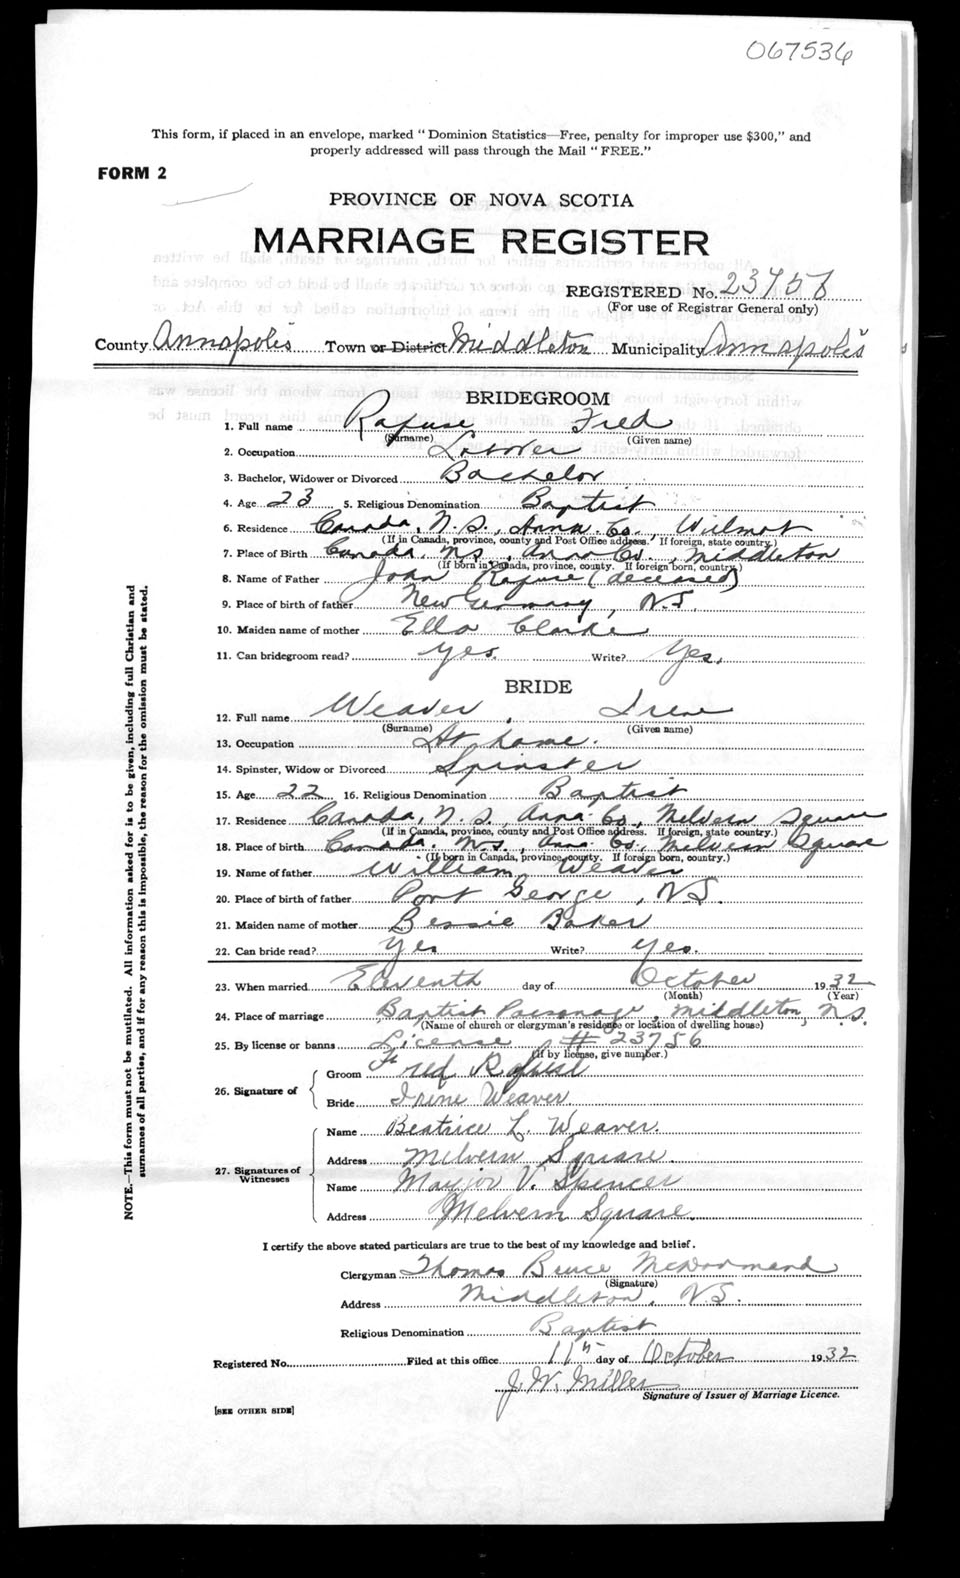 067536
This form, if placed in an envelope, marked "Dominion Statistics—Free, penalty for improper use $300," and
properly addressed will pass through the Mail "FREE."
FORM 2
PROVINCE OF NOVA SCOTIA
MARRIAGE REGISTER
REGISTERED No. 23756
(For use of Registrar General only)
County Annapolis Town or District Middleton Municipality Annapolis
BRIDEGROOM
1. Full name Rafuse Fred
(Surname) (Given name)
2. Occupation Laborer
3. Bachelor, Widower or Divorced Bachelor
4. Age 23 5. Religious Denomination Baptist
6. Residence Canada, N.S., Anna. Co. Wilmot
(If in Canada, province, county and Post Office address. If foreign, state country.)
7. Place of Birth Canada, N.S., Anna Co., Middleton
(If born in Canada, province, county. If foreign born, country.)
8. Name of Father John Rafuse (deceased)
9. Place of birth of father New Germany, N.S.
10. Maiden name of mother Ella Clarke
11. Can bridegroom read? Yes. Write? Yes.
BRIDE
12. Full name Weaver, Irene
(Surname) (Given name)
13. Occupation At home.
14. Spinster, Widow or Divorced Spinster
15. Age 22 16. Religious Denomination Baptist
17. Residence Canada, N.S., Anna. Co., Melvern Square
(If in Canada, province, county and Post Office address. If foreign, state country.)
18. Place of birth Canada, N.S., Anna. Co., Melvern Square
(If born in Canada, province, county. If foreign born, country.)
19. Name of father William Weaver
20. Place of birth of father Port George, N.S.
21. Maiden name of mother Bessie Baker
22. Can bride read? Yes Write? Yes.
23. When married Eleventh day of October 1932
(Month) (Year)
24. Place of marriage Baptist Parsonage, Middleton, N.S.
(Name of church or clergyman's residence or location of dwelling house)
25. By license or banns License # 23756
(If by license, give number.)
26. Signature of
Groom Fred Rafuse
Bride Irene Weaver
27. Signatures of Witnesses
Name Beatrice L. Weaver.
Address Melvern Square.
Name Marjor V. Spencer
Address Melvern Square.
I certify the above stated particulars are true to the best of my knowledge and belief.
Clergyman Thomas Bruce McDormand
(Signature)
Address Middleton, N.S.
Religious Denomination Baptist
Registered No. Filed at this office 11th day of October 1932
J. W. Miller
Signature of Issuer of Marriage Licence.
[SEE OTHER SIDE]
NOTE.—This form must not be mutilated. All information asked for is to be given, including full Christian and
surnames of all parties, and if for any reason this is impossible, the reason for the omission must be stated.